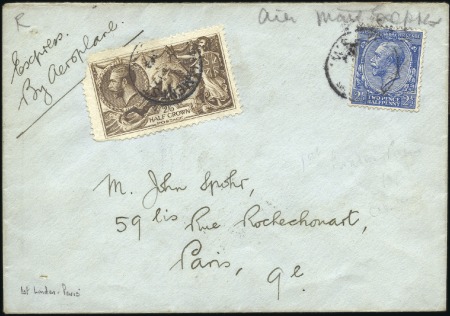 R
Air Mail Express
Express.
By Aeroplane.
2/6
HALF CROWN
POSTAGE
TWO PENCE
HALFPENNY
M. John Spohr,
59 bis Rue Rochechouart,
Paris, 9e.
1st London-Paris